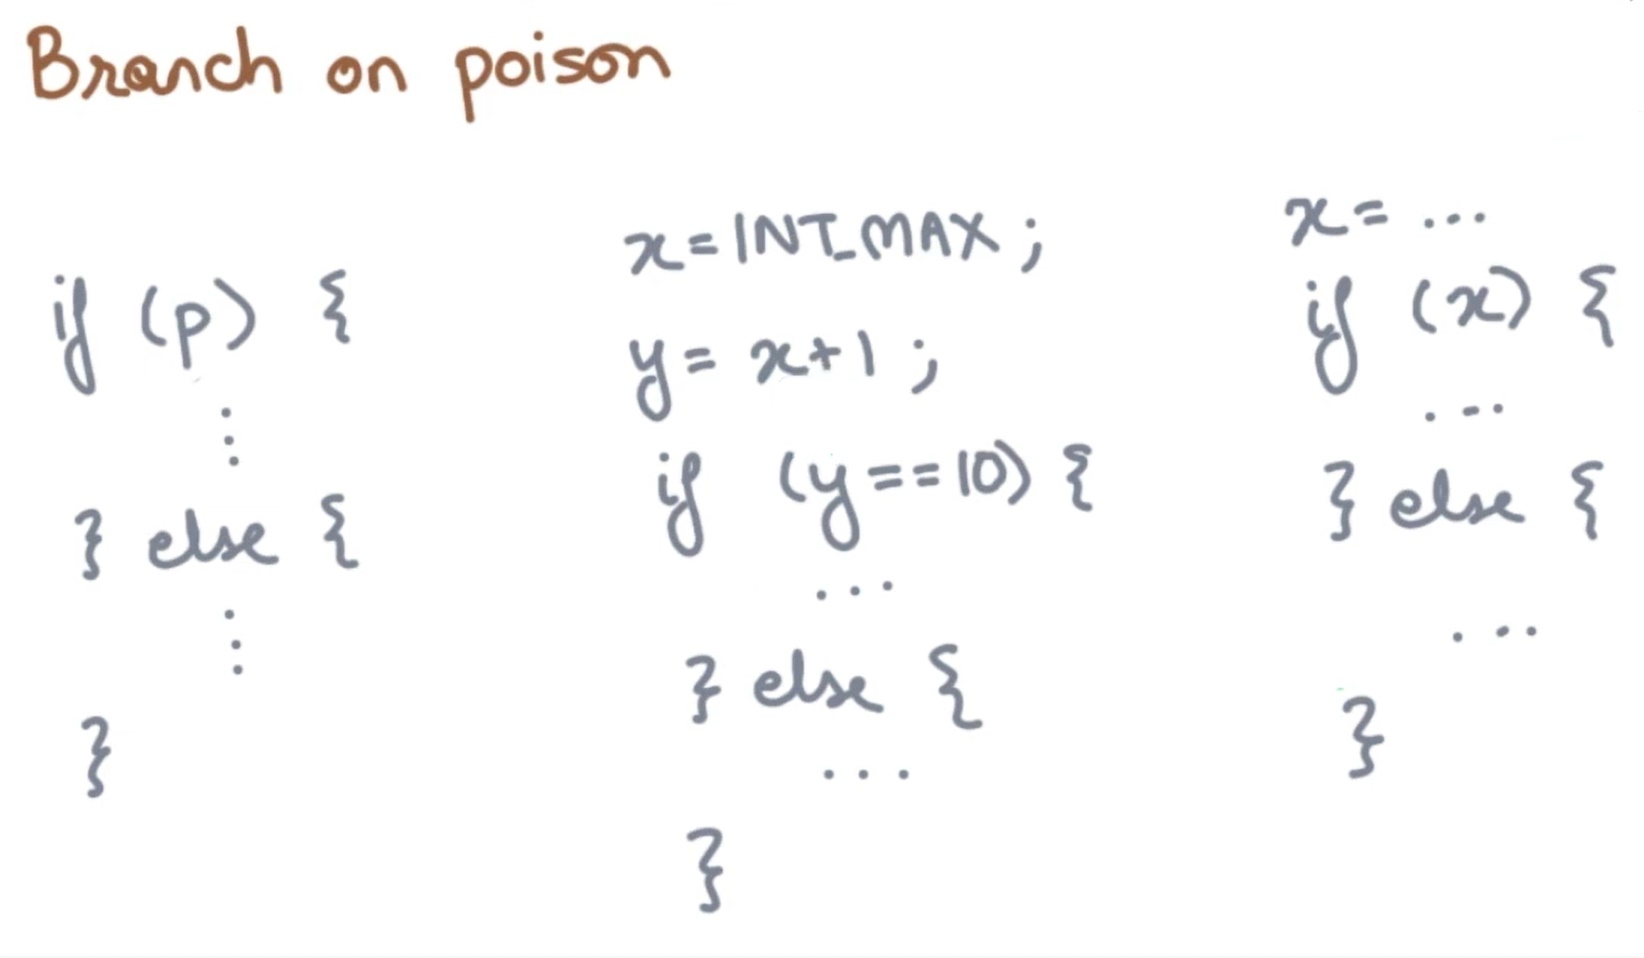 Branch on poison
if (p) {
⋮
} else {
⋮
}
x = INT_MAX ;
y = x+1 ;
if (y==10) {
...
} else {
...
}
x = ...
if (x) {
...
} else {
...
}